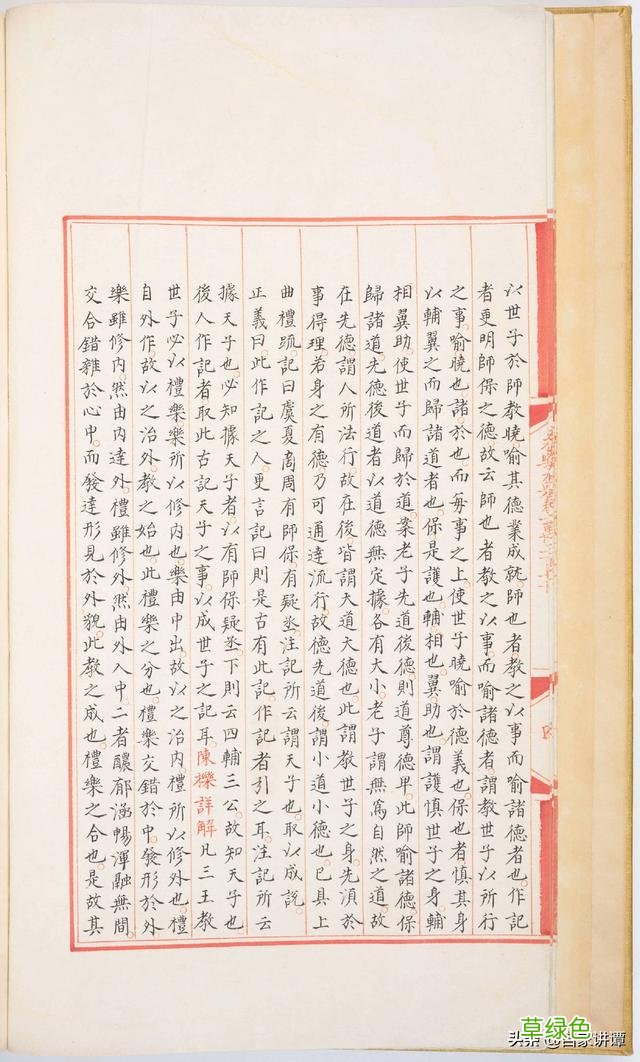 以世子於師教曉喻其德業成就師也者教之以事而喻諸德者也作記
者更明師保之德故云師也者教之以事而喻諸德者謂教世子以所行
之事喻曉也諸於也而每事之上使世子曉喻於德義也保也者慎其身
以輔翼之而歸諸道者也保是護也輔相也翼助也謂護慎世子之身輔
相翼助使世子而歸於道案老子先道後德則道尊德卑此師喻諸德保
歸諸道先德後道者以道德無定據各有大小老子謂無為自然之道故
在先德謂人所法行故在後皆謂大道大德也此謂教世子之身先須於
事得理若身之有德乃可通達流行故德先道後謂小道小德也已具上
曲禮䟽記曰虞夏商周有師保有疑丞注記所云謂天子也取以成說
正義曰此作記之人更言記曰則是古有此記作記者引之耳注記所云
據天子也必知據天子者以有師保疑丞下則云四輔三公故知天子也
後人作記者取此古記天子之事以成世子之記耳陳櫟詳解凡三王教
世子必以禮樂樂所以修內也樂由中出故以之治內禮所以修外也禮
自外作故以之治外教之始也此禮樂之分也禮樂交錯於中發形於外
樂雖修內然由內達外禮雖修外然由外入中二者醲郁涵暢渾融無間
交合錯雜於心中而發達形見於外貌此教之成也禮樂之合也是故其
草绿色
头条 @百家讲谭